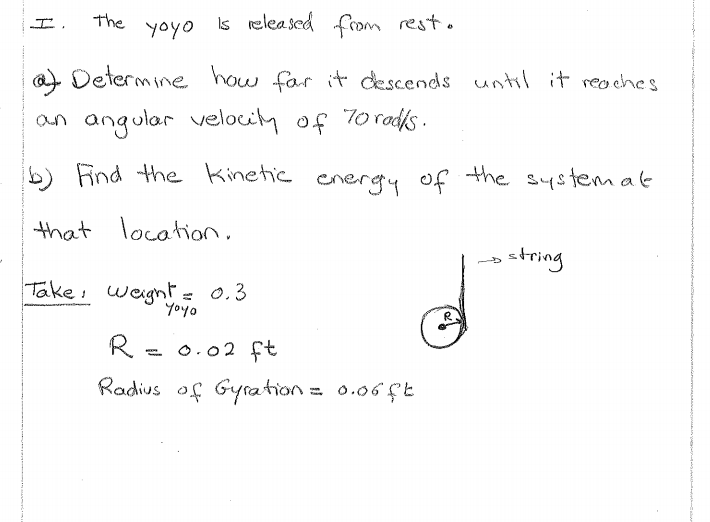 I. The yoyo is released from rest.
a) Determine how far it descends until it reaches
an angular velocity of 70 rad/s.
b) Find the kinetic energy of the system at
that location.
→ string
Take: weight yoyo = 0.3
R
R = 0.02 ft
Radius of Gyration = 0.06 ft